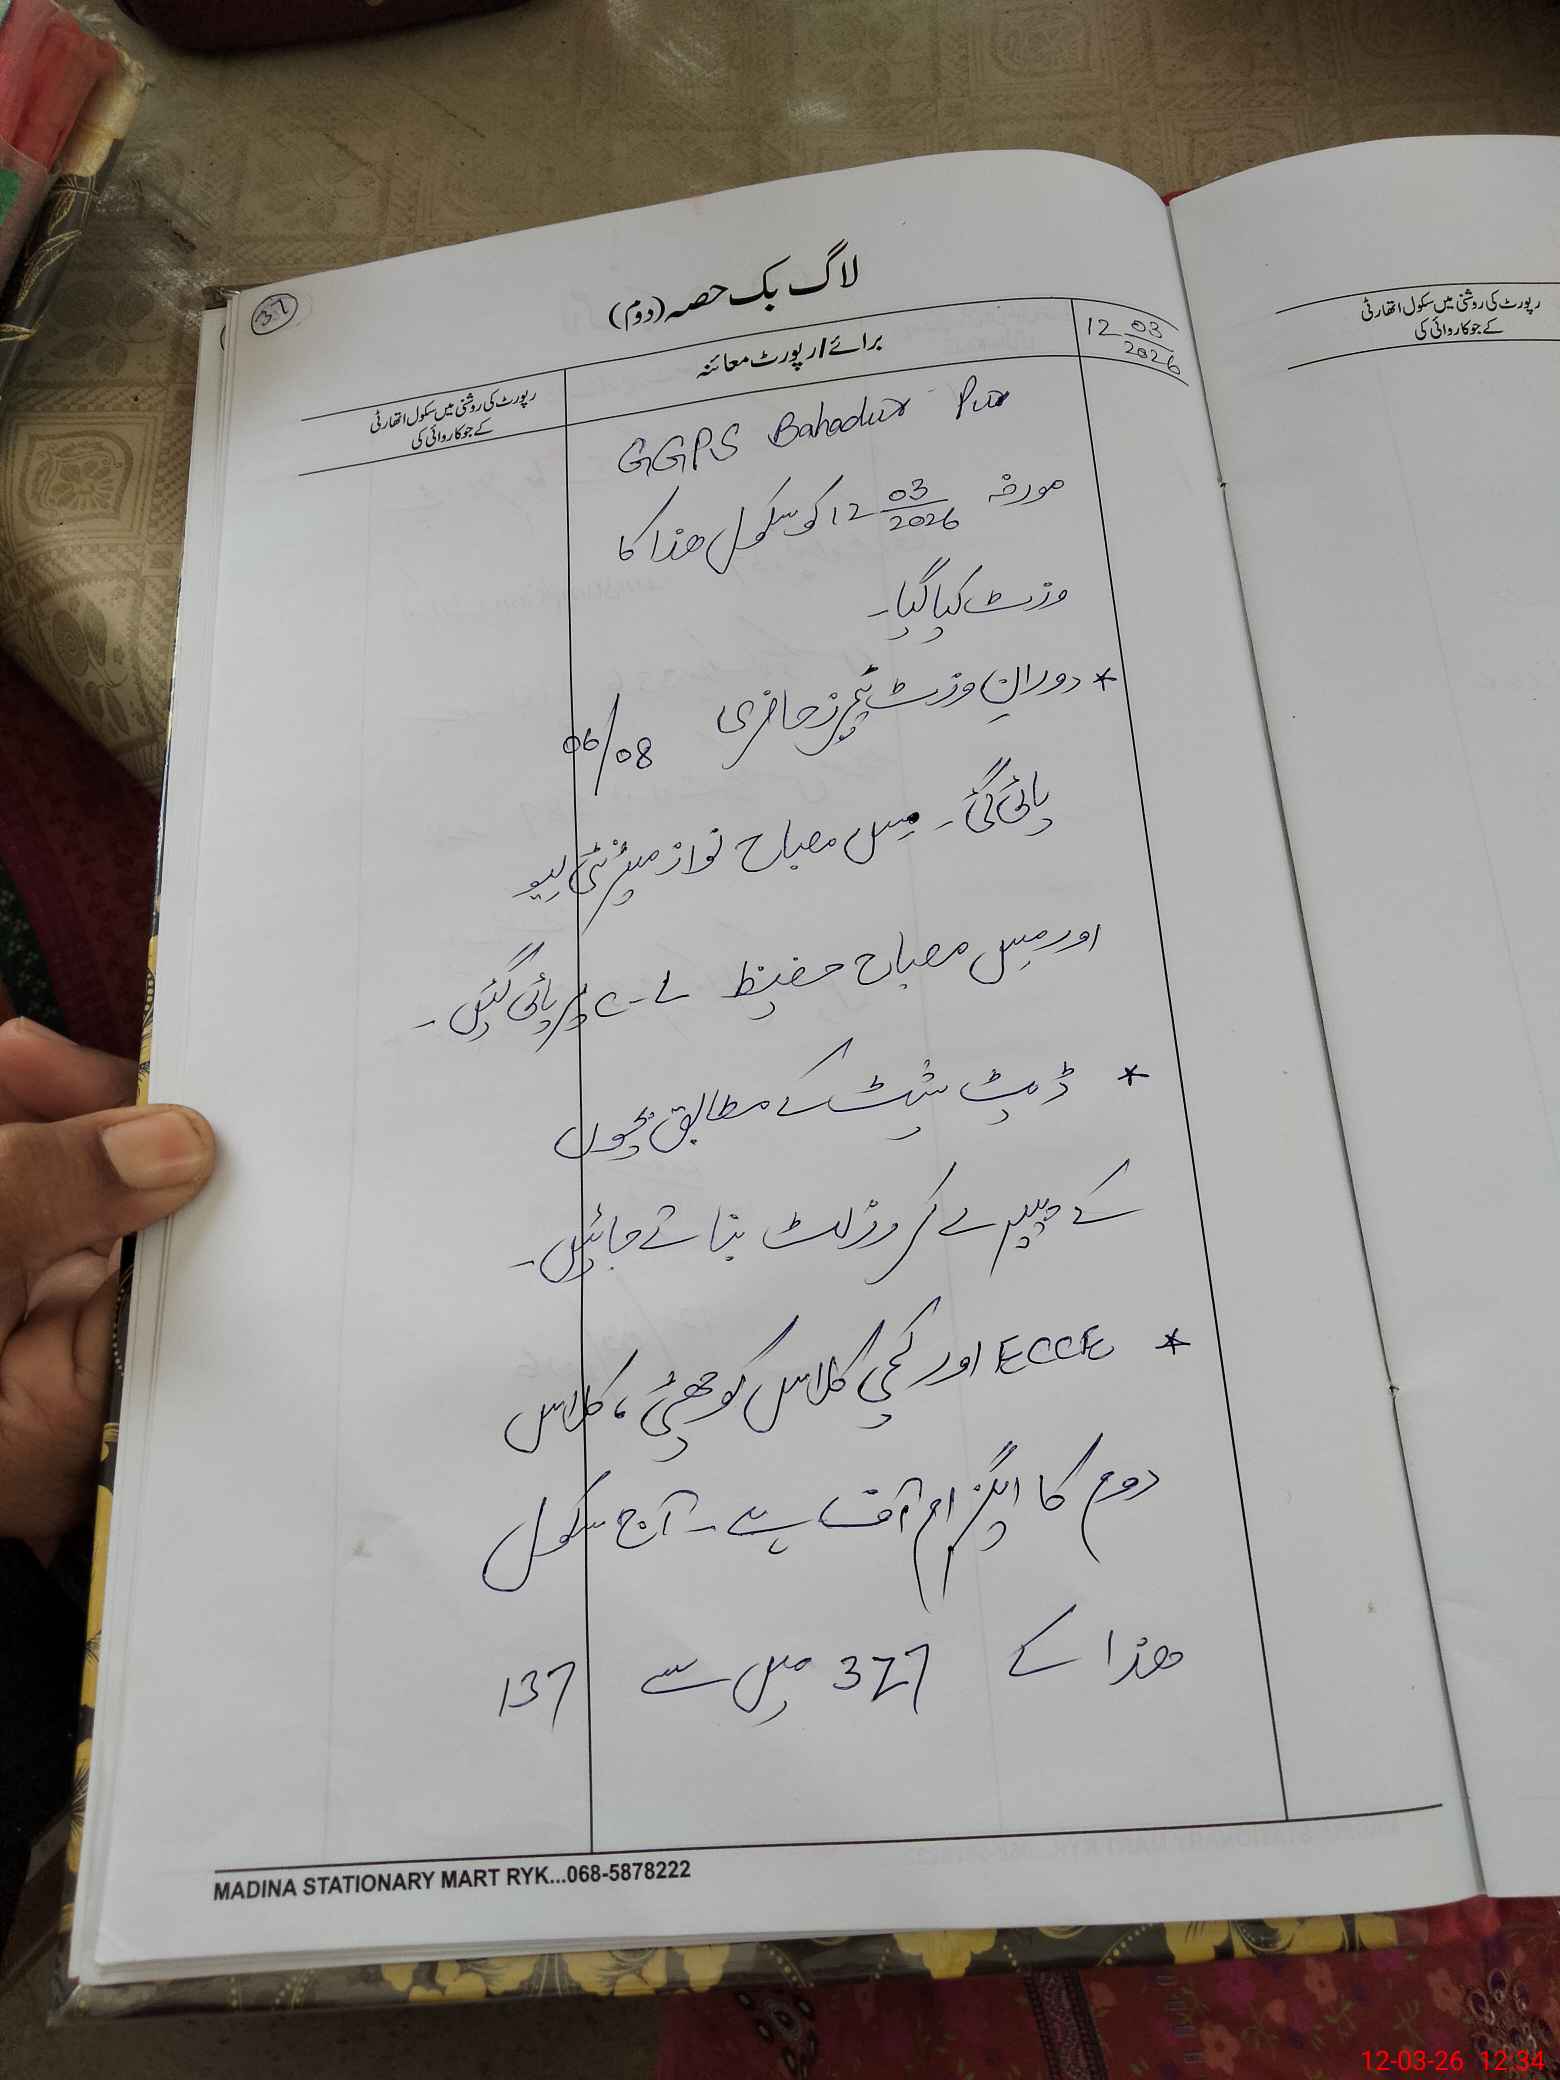 37
لاگ بک حصہ (دوم)
برائے/رپورٹ معائنہ
12 03/2026
رپورٹ کی روشنی میں سکول اتھارٹی
کے جو کاروائی کی
GGPS Bahadur Pur
مورخہ 12 03/2026 کو سکول ھذا کا
وزٹ کیا گیا۔
* دورانِ وزٹ ٹیچرز حاضری 06/08
پائی گئی۔ مِس مصباح نواز میٹرنٹی لِیو
اور مِس مصباح حفیظ پر پائی گئیں۔
* ڈیٹ شیٹ کے مطابق بچوں
کے پیپر لے کر رزلٹ بناتے جائیں۔
* ECCE اور کچی کلاس کو چھٹی، کلاس
دوم کا ایگزام آف ہے۔ آج سکول
ھذا کے 327 میں سے 137
MADINA STATIONARY MART RYK...068-5878222
رپورٹ کی روشنی میں سکول اتھارٹی
کے جو کاروائی کی
12-03-26 12:34